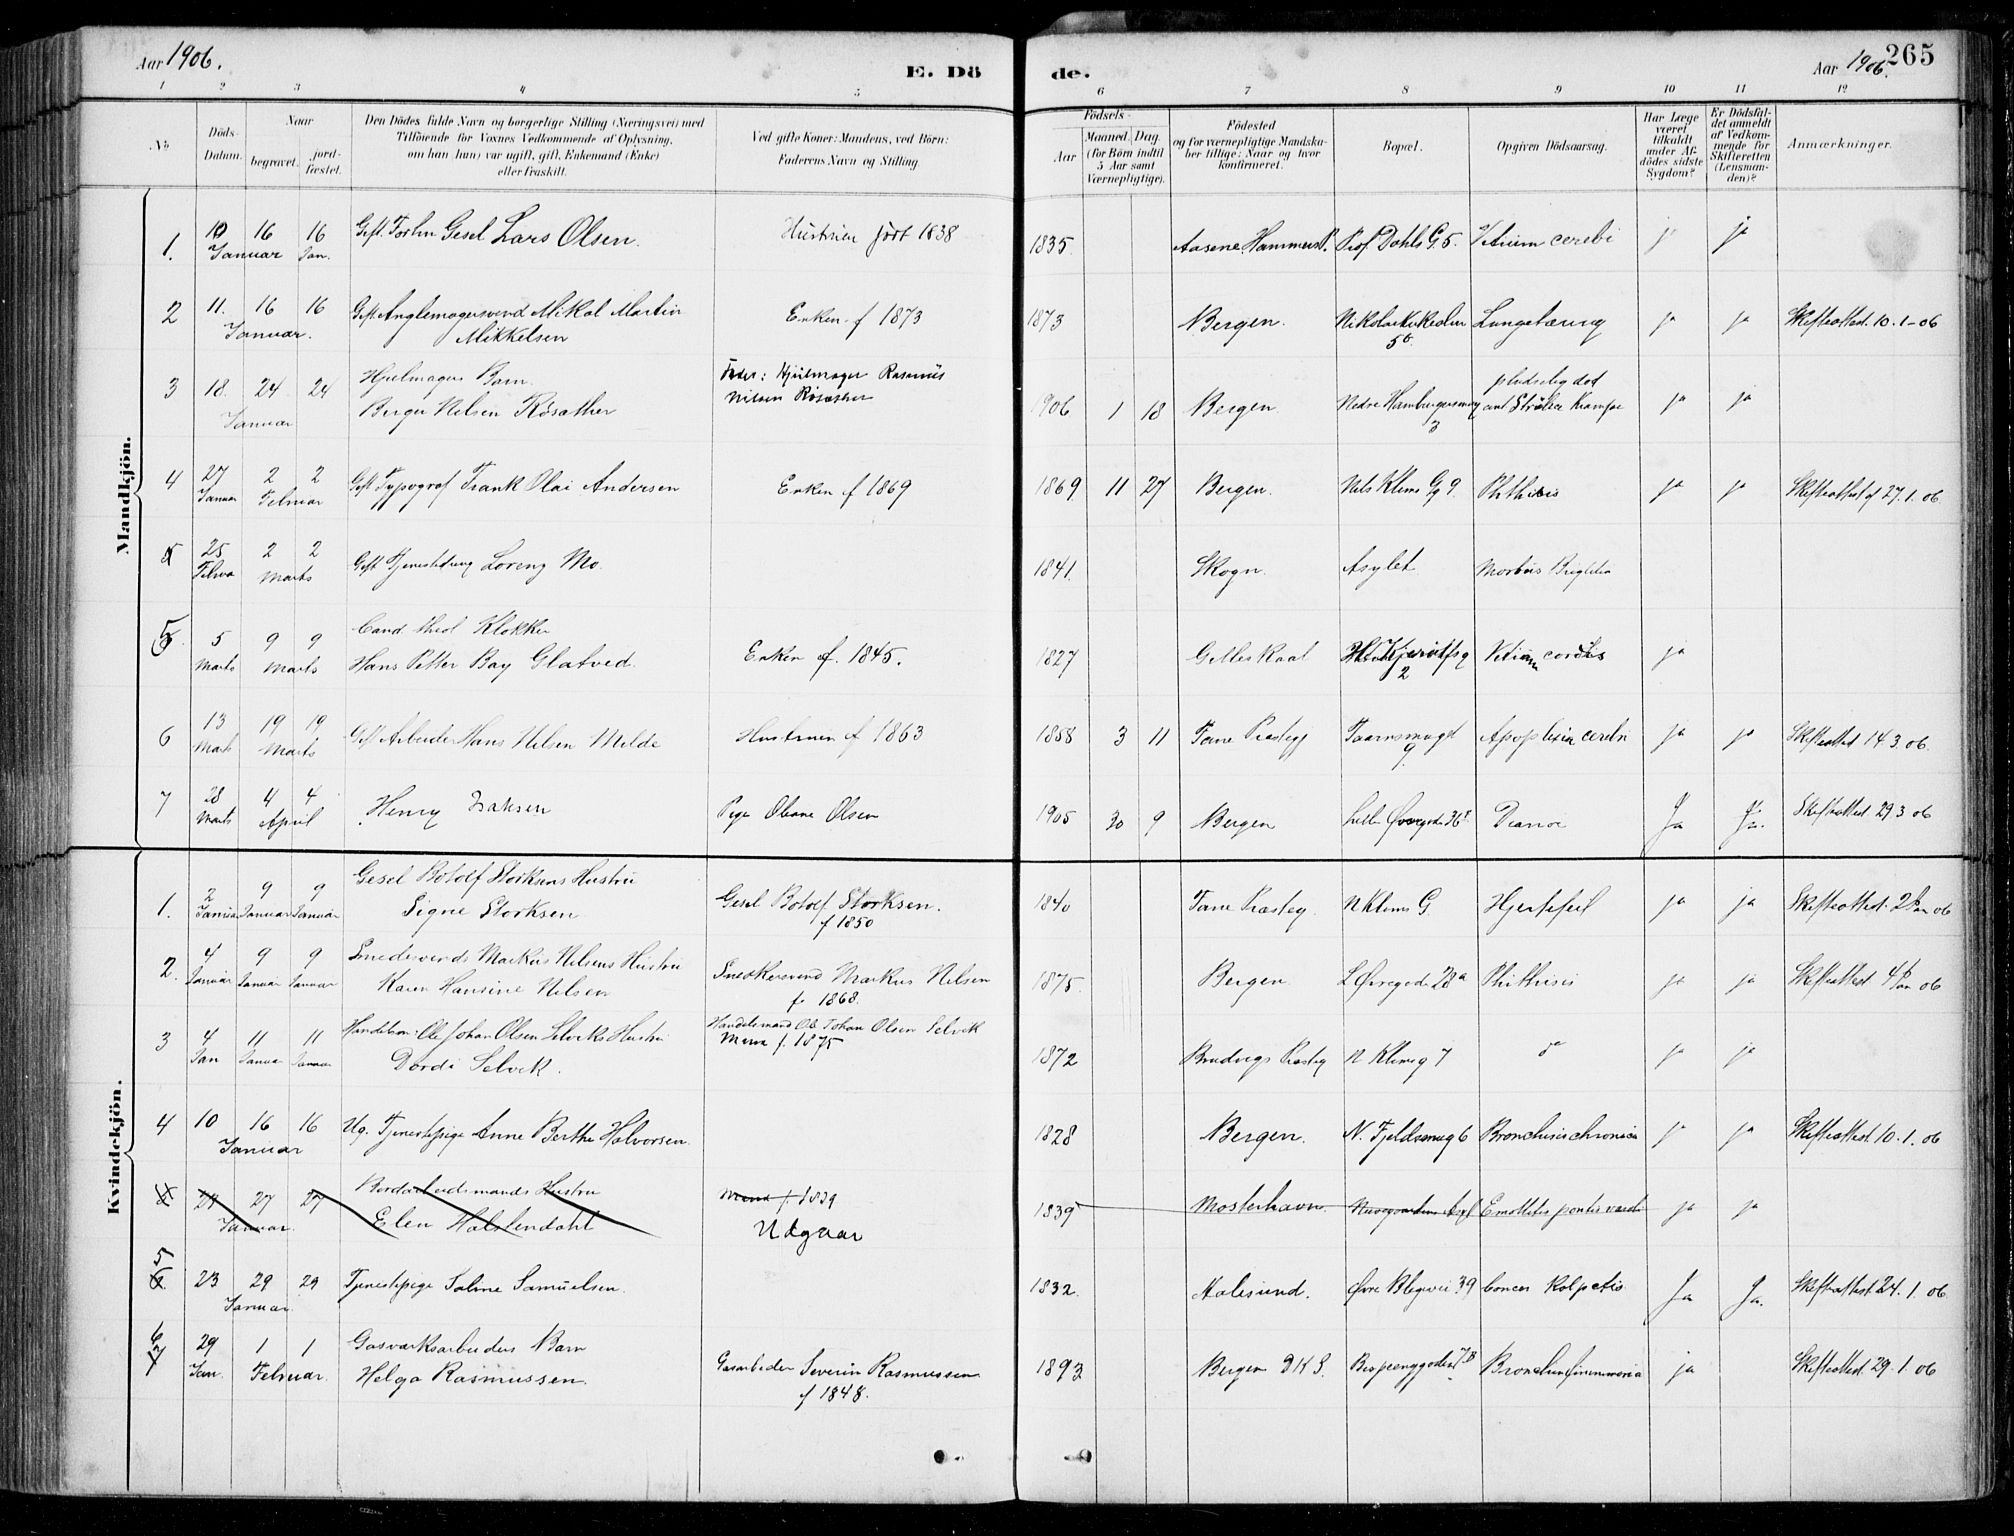 Aar 1906.
E. Dö
de.
Aar 1906.
265
1 2 3 4 5 6 7 8 9 10 11 12
No
Döds-Datum.
Naar
begravet.
jord-fæstet.
Den Dödes fulde Navn og borgerlige Stilling (Næringsvei) med
Tilföiende for Voxnes Vedkommende af Oplysning,
om han (hun) var ugift, gift, Enkemand (Enke)
eller fraskilt.
Ved gifte Koner: Mandens, ved Börn:
Faderens Navn og Stilling.
Födsels-
Aar
Maaned. Dag.
(for Börn indtil
5 Aar samt
Værnepligtige).
Födested
og for værnepligtige Mandska-
ber tillige: Naar og hvor
konfirmeret.
Bopæl.
Opgiven Dödsaarsag.
Har Læge
været
tilkaldt
under Af-
dödes sidste
Sygdom?
Er Dödsfal-
det anmeldt
af Vedkom-
mende for
Skifteretten
(Lensman-
den)?
Anmærkninger.
Mandkjön.
1. 10 Januar 16 16 Jan. Gift. Gesel Lars Olsen. Hustruen født 1838 1835 Aasene, Hammers P. Prof Dahls G. 5. Vitium cerebi ja ja
2 11. 16 16 Januar. Gift Mikal Martin Mikkelsen Enken f 1873 1873 Bergen. 5b Lungetæring ja ja Skifteattest. 10.1-06
3 18. 24 24 Januar Hjulmagers Barn. Berger Nilsen Røsæther Fader: Hjulmager Rasmus Nilsen Røsæther 1906 1 18 Bergen Nedre Hamburgersmug 3 pludselig død ant Krampe ja ja
4 27 Januar 2 2 Februar Gift Typograf Frank Olai Andersen Enken f 1869 1869 11 27 Bergen. Nels Klims G 9. Phthisis ja ja Skifteattest af 27.1.06
5 25 Februa 2 2 Marts Gift Lorenz Mo. 1841. Skogn. Asylet Morbus Brightii
5 5 Marts 9 9 Marts Cand. theol Klokker Hans Petter Bay Glatved. Enken f. 1845. 1827 Gilleskaal 2 Vitium cordis ja
6 13 Marts 19 19 Marts Gift Arbeider Hans Nilsen Milde Hustruen f 1863 1858 3 11 Fane Præstegj Taarnsmugt 9 Apoplexia cerebri ja ja Skifteattest 14.3.06.
7 28 Marts 4 4 April Henry Isaksen Pige Oleane Olsen 1905 30 9 Bergen Lille Øvregade 36 Ja Ja. Skifteattest 29 3 06
Kvindekjön.
1. 2 Januar 9 Januar 9 Januar Gesel Botolf Storksens Hustru Signe Storksen Gesel Botolf Storksen. f 1850 1840 Fane Præsteg. N Klims G. Hjertefeil ja ja Skifteattest. 2 Jan 06
2. 4 Januar 9 Januar 9 Januar Smedesvends Markus Nilsens Hustru Karen Hansine Nilsen Snedkersvend Markus Nilsen f. 1868. 1875. Bergen. L Øvregade 28a Phthisis ja ja Skifteattest. 4 Jan 06
3 4 Jan 11 Januar 11 Januar Handelsm: Ole Johan Olsen Selviks Hustru Dordi Selvik. Handelsmand Ole Johan Olsen Selvik Mand f. 1875 1872 Bruviks Præsteg N Klims g 7 do ja ja
4 10 16 16 Januar Ug. Tjenestepige Anne Berthe Halvorsen. 1828 Bergen. N. Fjeldsmug 6 Bronchitis chronica ja ja Skifteattest 10.1.06
5 24 27 27 Januar. Hustru Elen Halstendahl Mand f 1839 Udgaar 1839 Mosterhavn ja ja
5 23 29 29 Januar. Tjenestepige Saline Samuelsen. 1832. Aalesund. Øvre Blegevei 39 Ja Ja. Skifteattest 24.1.06
6 29 Jan. 1 1 Februar. Gasværksarbeiders Barn Helga Rasmussen. Gasarbeider Severin Rasmussen f 1848. 1893 Bergen D K S. ja Skifteattest. 29.1.06